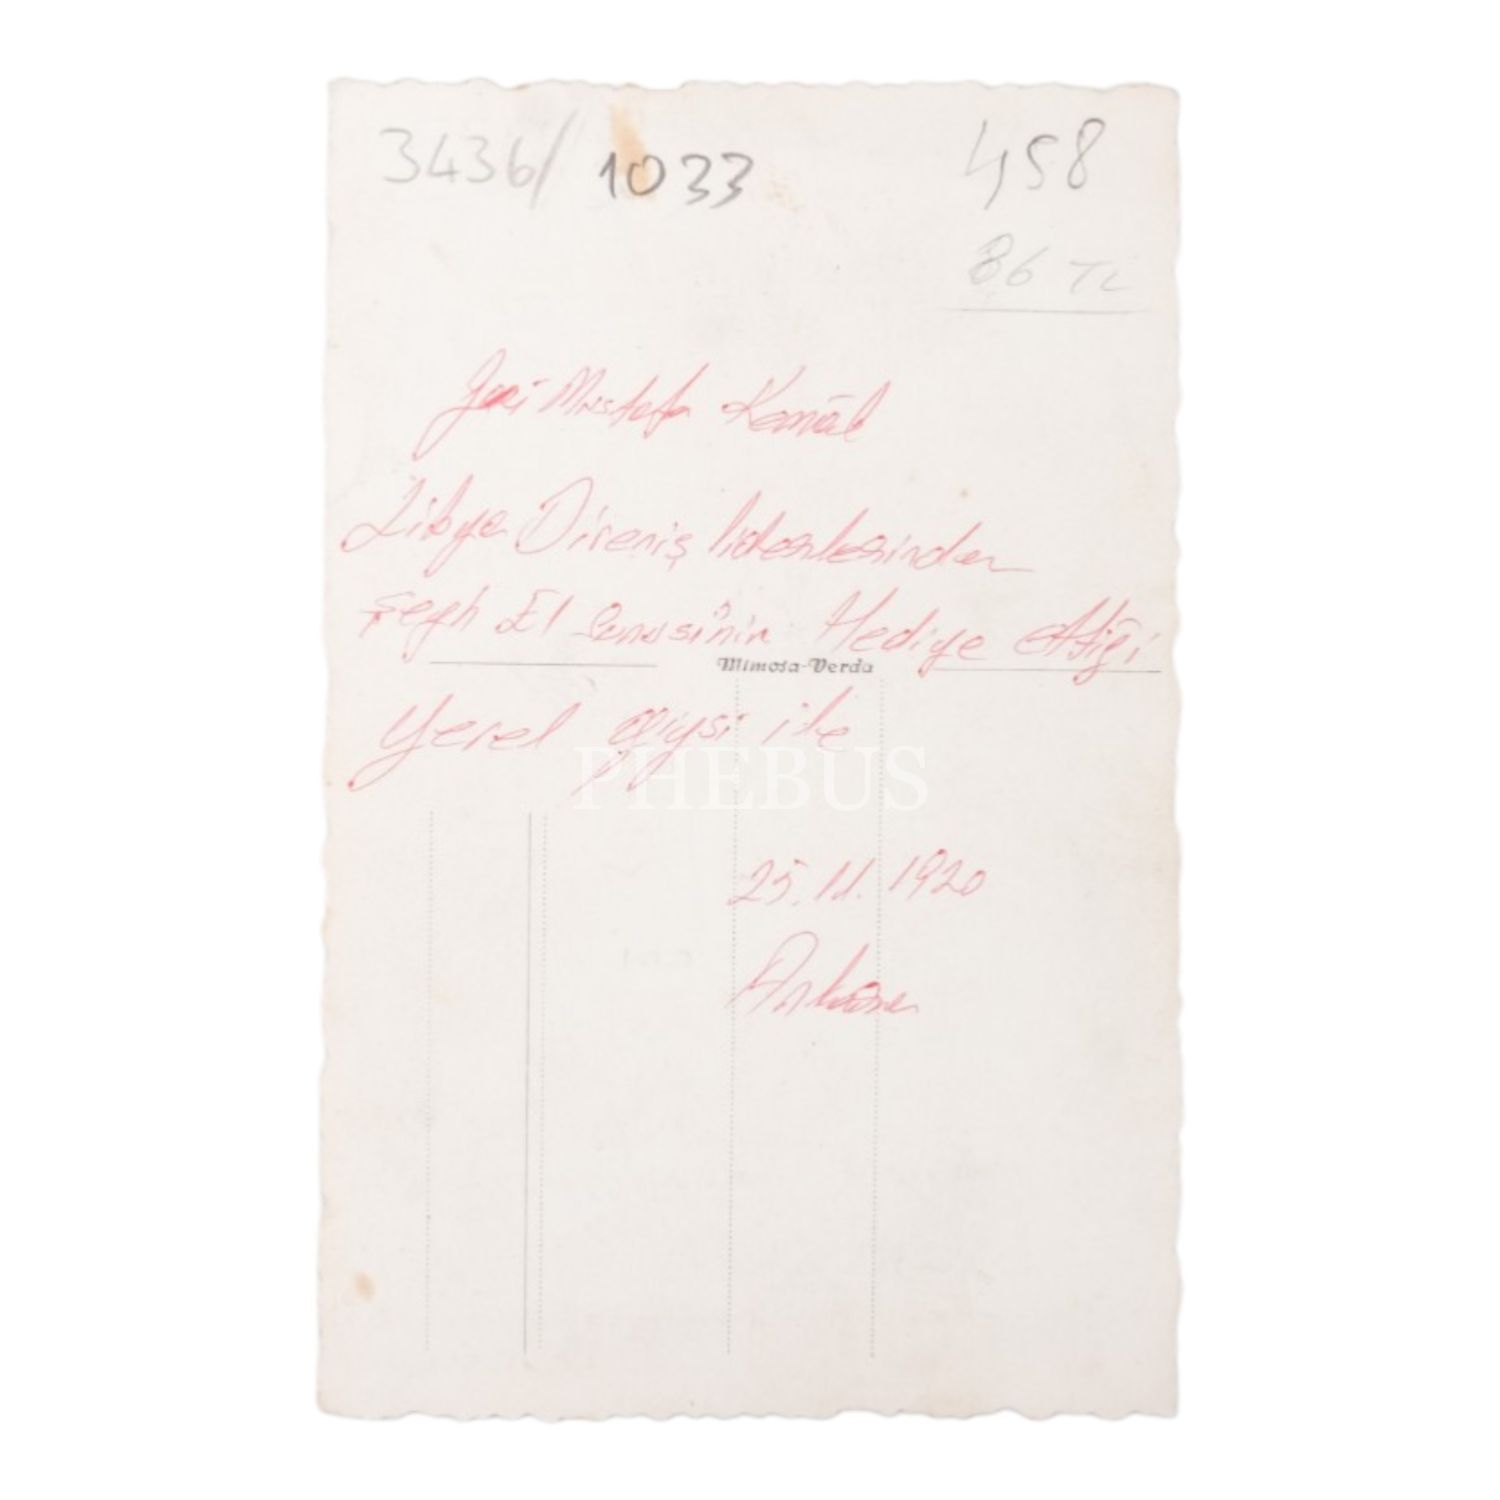 3436/ 1033
458
86 TL
Gazi Mustafa Kemâl
Libya Direniş liderlerinden
Şeyh El Senusi'nin Hediye ettiği
Mimosa-Verda
yerel giysi ile
PHEBUS
25.11.1920
Ankara